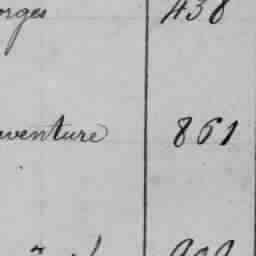 orges 438
aventure 861